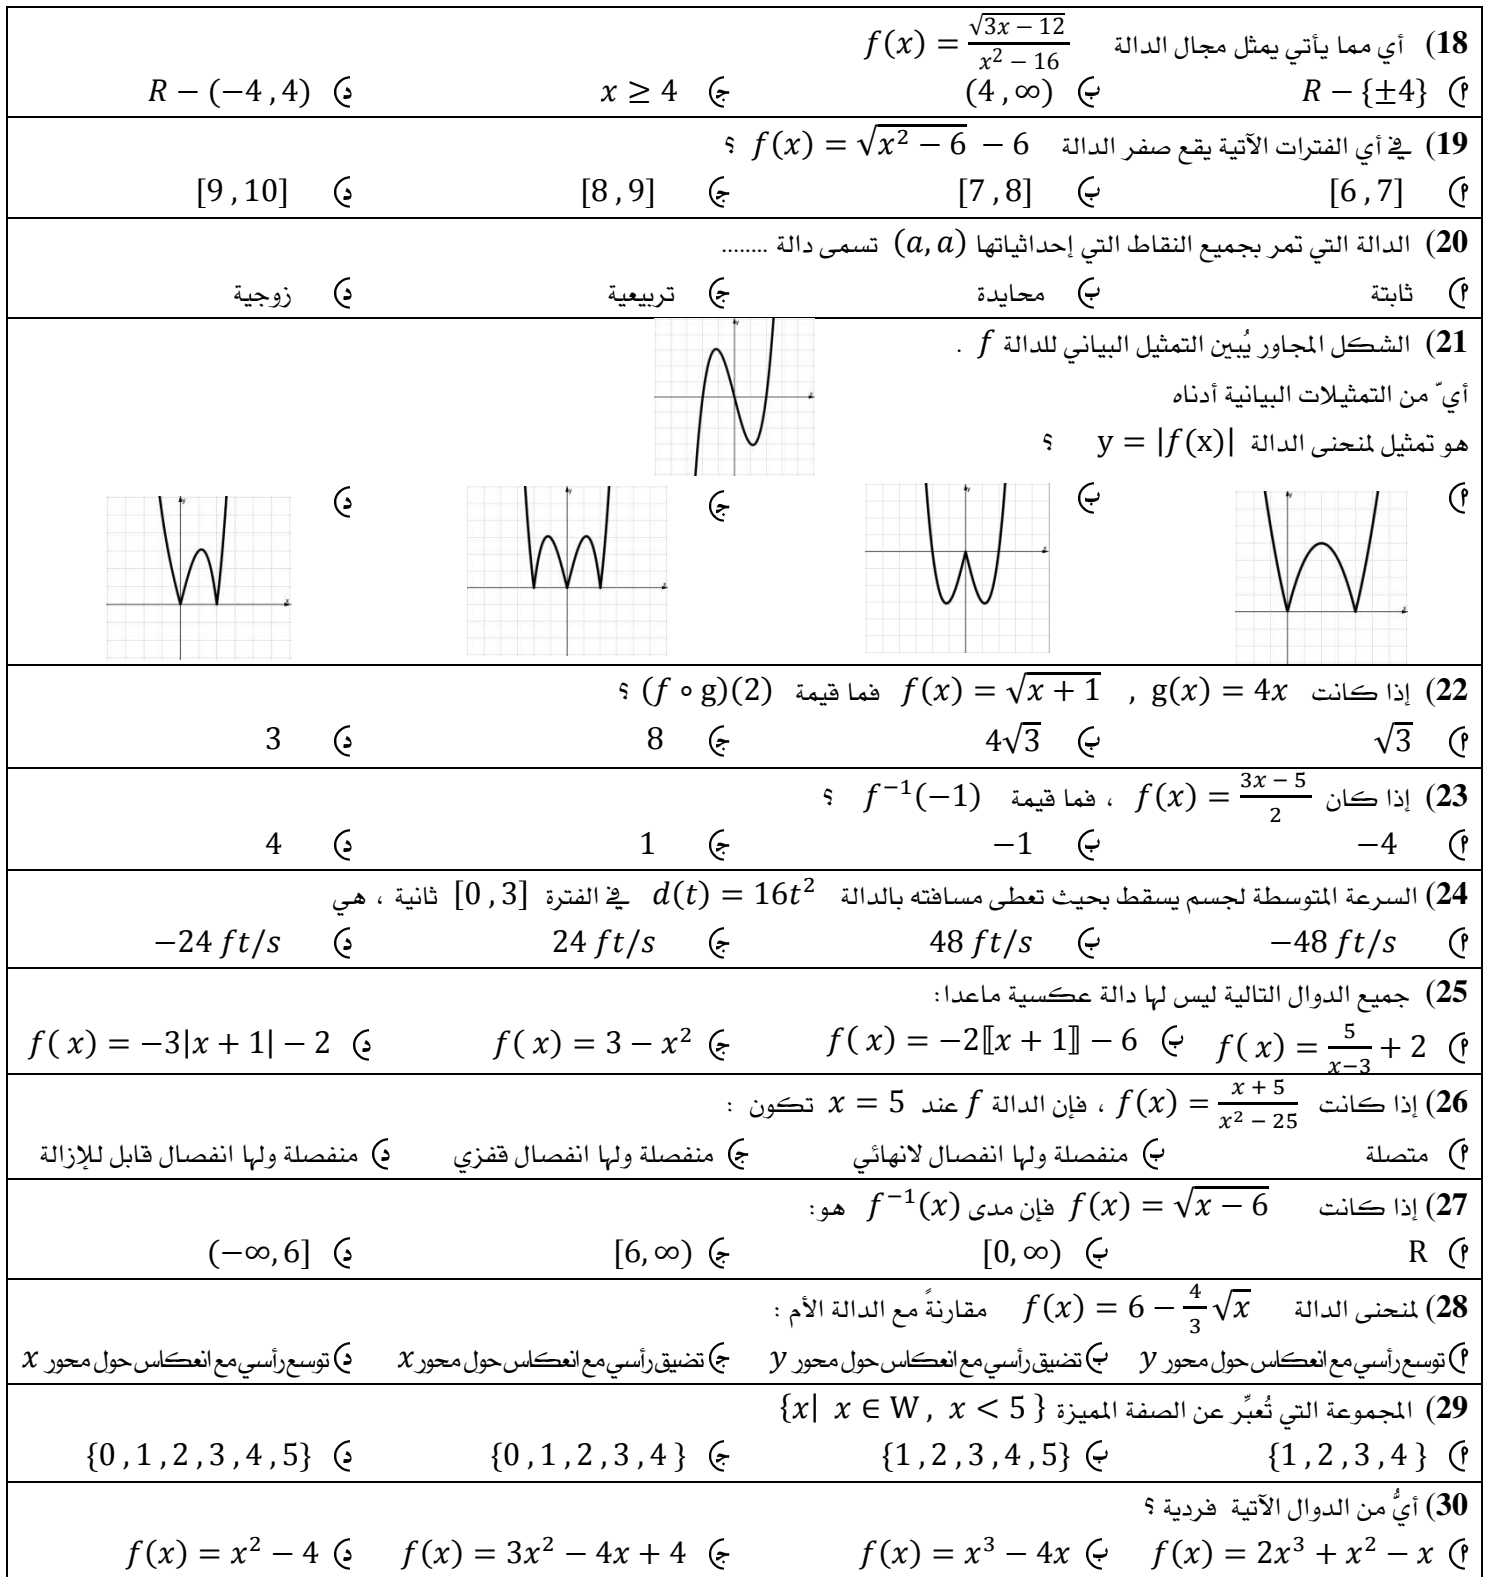 18) أي مما يأتي يمثل مجال الدالة f(x) = \frac{\sqrt{3x − 12}}{x² − 16}
أ) R − {±4} ب) (4 , ∞) ج) x ≥ 4 د) R − (−4 , 4)
19) في أي الفترات الآتية يقع صفر الدالة f(x) = \sqrt{x² − 6} − 6 ؟
أ) [6 , 7] ب) [7 , 8] ج) [8 , 9] د) [9 , 10]
20) الدالة التي تمر بجميع النقاط التي إحداثياتها (a, a) تسمى دالة ........
أ) ثابتة ب) محايدة ج) تربيعية د) زوجية
21) الشكل المجاور يُبين التمثيل البياني للدالة f .
أيّ من التمثيلات البيانية أدناه
هو تمثيل لمنحنى الدالة y = |f(x)| ؟
أ) ب) ج) د)
22) إذا كانت f(x) = \sqrt{x + 1} , g(x) = 4x فما قيمة (f ∘ g)(2) ؟
أ) √3 ب) 4√3 ج) 8 د) 3
23) إذا كان f(x) = \frac{3x − 5}{2} ، فما قيمة f⁻¹(−1) ؟
أ) −4 ب) −1 ج) 1 د) 4
24) السرعة المتوسطة لجسم يسقط بحيث تعطى مسافته بالدالة d(t) = 16t² في الفترة [0 , 3] ثانية ، هي
أ) −48 ft/s ب) 48 ft/s ج) 24 ft/s د) −24 ft/s
25) جميع الدوال التالية ليس لها دالة عكسية ماعدا:
أ) f( x) = \frac{5}{x−3} + 2 ب) f( x) = −2⟦x + 1⟧ − 6 ج) f( x) = 3 − x² د) f( x) = −3|x + 1| − 2
26) إذا كانت f(x) = \frac{x + 5}{x² − 25} ، فإن الدالة f عند x = 5 تكون :
أ) متصلة ب) منفصلة ولها انفصال لانهائي ج) منفصلة ولها انفصال قفزي د) منفصلة ولها انفصال قابل للإزالة
27) إذا كانت f(x) = \sqrt{x − 6} فإن مدى f⁻¹(x) هو:
أ) R ب) [0, ∞) ج) [6, ∞) د) (−∞, 6]
28) لمنحنى الدالة f(x) = 6 − \frac{4}{3}√x مقارنةً مع الدالة الأم :
أ) توسع رأسي مع انعكاس حول محور y ب) تضيق رأسي مع انعكاس حول محور y ج) تضيق رأسي مع انعكاس حول محور x د) توسع رأسي مع انعكاس حول محور x
29) المجموعة التي تُعبِّر عن الصفة المميزة {x| x ∈ W , x < 5 }
أ) {1 , 2 , 3 , 4 } ب) {1 , 2 , 3 , 4 , 5} ج) {0 , 1 , 2 , 3 , 4 } د) {0 , 1 , 2 , 3 , 4 , 5}
30) أيُّ من الدوال الآتية فردية ؟
أ) f(x) = 2x³ + x² − x ب) f(x) = x³ − 4x ج) f(x) = 3x² − 4x + 4 د) f(x) = x² − 4